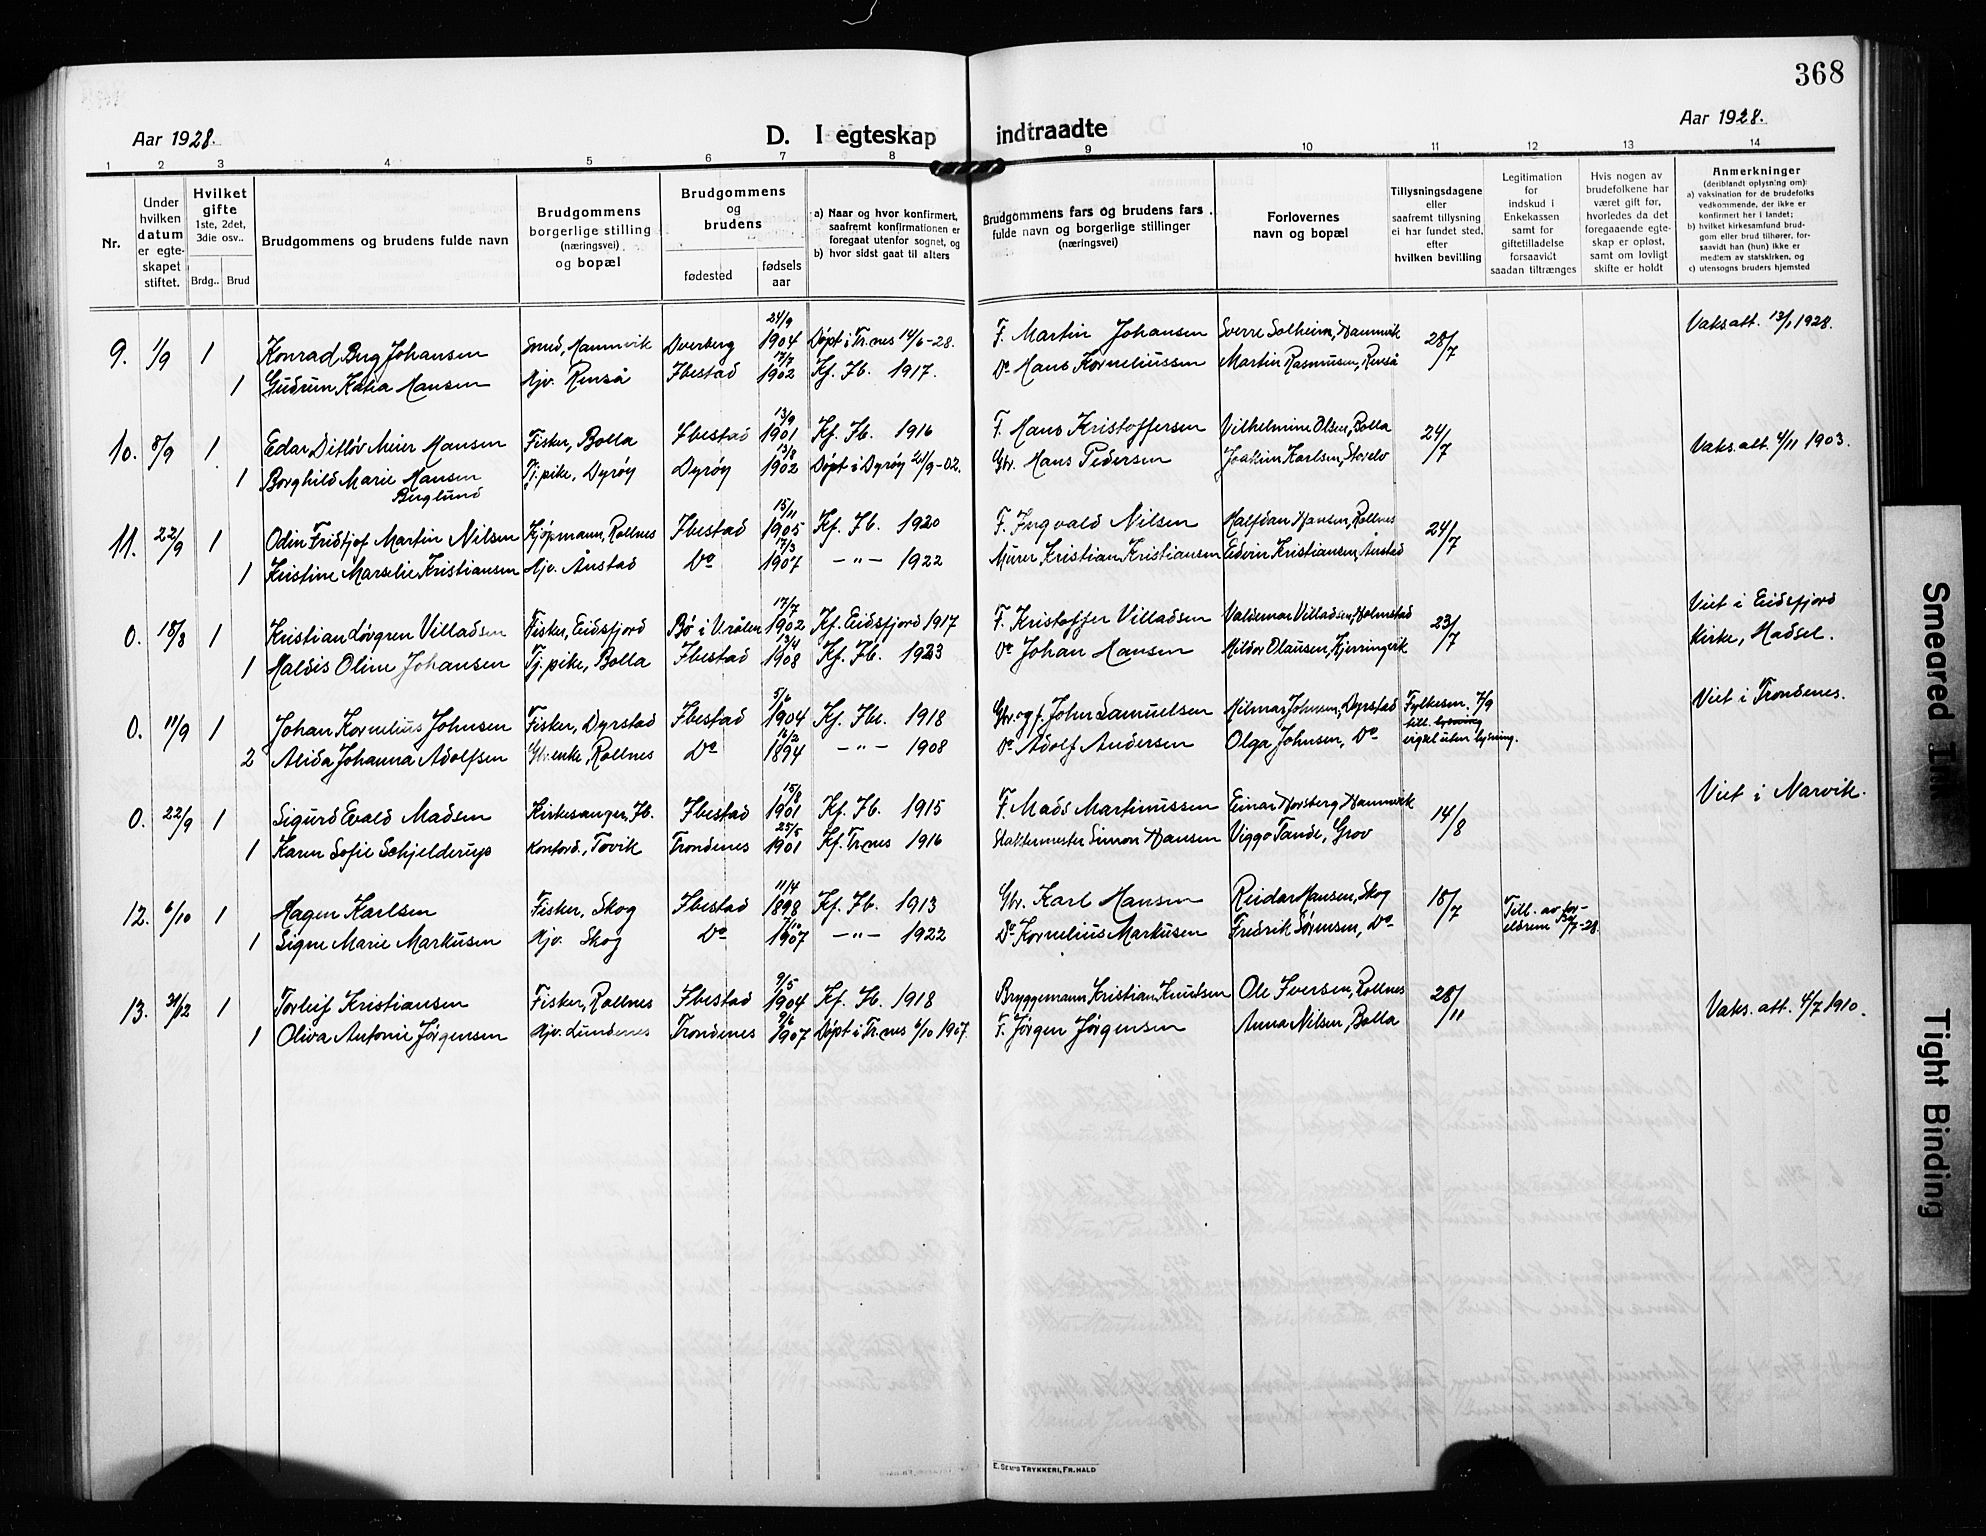 368
Aar 1928.
D. I egteskap indtraadte
Aar 1928.
1 2 3 4 5 6 7 8 9 10 11 12 13 14
Nr.
Under hvilken datum er egteskapet stiftet.
Hvilket gifte 1ste, 2det, 3die osv..
Brdg.. Brud
Brudgommens og brudens fulde navn
Brudgommens borgerlige stilling (næringsvei) og bopæl
Brudgommens og brudens
fødested
fødselsaar
a) Naar og hvor konfirmert, saafremt konfirmationen er foregaat utenfor sognet, og
b) hvor sidst gaat til alters
Brudgommens fars og brudens fars fulde navn og borgerlige stillinger (næringsvei)
Forlovernes navn og bopæl
Tillysningsdagene eller saafremt tillysning ei har fundet sted, efter hvilken bevilling
Legitimation for indskud i Enkekassen samt for giftetilladelse forsaavidt saadan tiltrænges
Hvis nogen av brudefolkene har været gift før, hvorledes da det foregaaende egteskap er opløst, samt om lovligt skifte er holdt
Anmerkninger (deriblandt oplysning om):
a) vaksination for de brudefolks vedkommende, der ikke er konfirmert her i landet;
b) hvilket kirkesamfund brudgom eller brud tilhører, forsaavidt han (hun) ikke er medlem av statskirken, og
c) utensogns bruders hjemsted
9. 1/9 1 Konrad Berg Johansen Smed, Hamnvik Dverberg 24/9 1904 Døpt i Tr.nes 14/6-28. F. Martin Johansen Sverre Solheim, Hamnvik 28/7 Vaksatt. 13/1 1928.
1 Gudrun Katia Hansen Hjv. Renså Ibestad 17/7 1902 Kf. Ib. 1917. Do Hans Korneliussen Martin Rasmussen, Renså
10. 8/9 1 Edar Ditløv Meier Hansen Fisker, Bolla Ibestad 13/9 1901 Kf. Ib. 1916 F. Hans Kristoffersen Vilhelmine Olsen, Bolla 24/7 Vaks.att. 4/11 1903.
1 Borghild Marie Hansen Berglund Tj.pike, Dyrøy Dyrøy 13/8 1902 Døpt i Dyrøy 21/9-02. Gbr. Hans Pedersen Joakim Karlsen, Storelv
11. 22/9 1 Odin Fridtjof Martin Nilsen Kjøpmann, Rollnes Ibestad 15/11 1905 Kf. Ib. 1920 F. Ingvald Nilsen Halfdan Hansen, Rollnes 24/7
1 Kristine Marselie Kristiansen Hjv. Ånstad Do 17/3 1907 -"- 1922 Murer Kristian Kristiansen Edvin Kristiansen, Ånstad
0. 18/8 1 Kristian Løvgren Villadsen Fisker, Eidsfjord Bø i V.rålen 17/7 1902 Kf. Eidsfjord 1917 F. Kristoffer Villadsen Valdemar Villadsen, Holmstad 23/7 Viet i Eidsfjord kirke, Hadsel.
1 Haldis Oline Johansen Tj.pike, Bolla Ibestad 13/4 1908 Kf. Ib. 1923 Do Johan Hansen Hildor Olausen, Kjerringvik
0. 11/9 1 Johan Kornelius Johnsen Fisker, Dyrstad Ibestad 5/6 1904 Kf. Ibe. 1918 Gbr. og f. John Samuelsen Hilmar Johnsen, Dyrstad Fylkesm. 7/9 till. lysning vigsel uten lysning. Viet i Trondenes.
2 Alida Johanna Adolfsen Gbr.enke, Rollnes Do 16/2 1894 -"- 1908 Do Adolf Andersen Olga Johnsen, Do
0. 22/9 1 Sigurd Evald Madsen Kirkesanger, Ib. Ibestad 15/8 1901 Kf. Ib. 1915 F. Mads Martinussen Einar Norberg, Hamnvik 14/8 Viet i Narvik.
1 Karen Sofie Schjelderup Kontord., Tovik Trondenes 25/5 1901 Kf. Tr.nes 1916 Stallermester Simon Hansen Viggo Tande, Grov
12. 6/10 1 Hagen Karlsen Fisker, Skog Ibestad 11/4 1898 Kf. Ib. 1913 Gbr. Karl Hansen Reidar Hansen, Skog 18/7 Till. av foreldrene /7-28.
1 Signe Marie Markusen Hjv. Skog Do 7/10 1907 -"- 1922 Do Kornelius Markusen Fredrik Sørensen, Do
13. 31/12 1 Torleif Kristiansen Fisker, Rollnes Ibestad 9/5 1904 Kf. Ib. 1918 Bryggemann Kristian Knutsen Ole Iversen, Rollnes 28/11 Vaks. att. 4/7 1910.
1 Oliva Antonie Jørgensen Hjv. Lundenes Trondenes 9/6 1907 Døpt i Tr.nes 6/10 1907. F. Jørgen Jørgensen Anna Nilsen, Bolla
E. SEM'S TRYKKERI, FR.HALD
Smeared Ink
Tight Binding